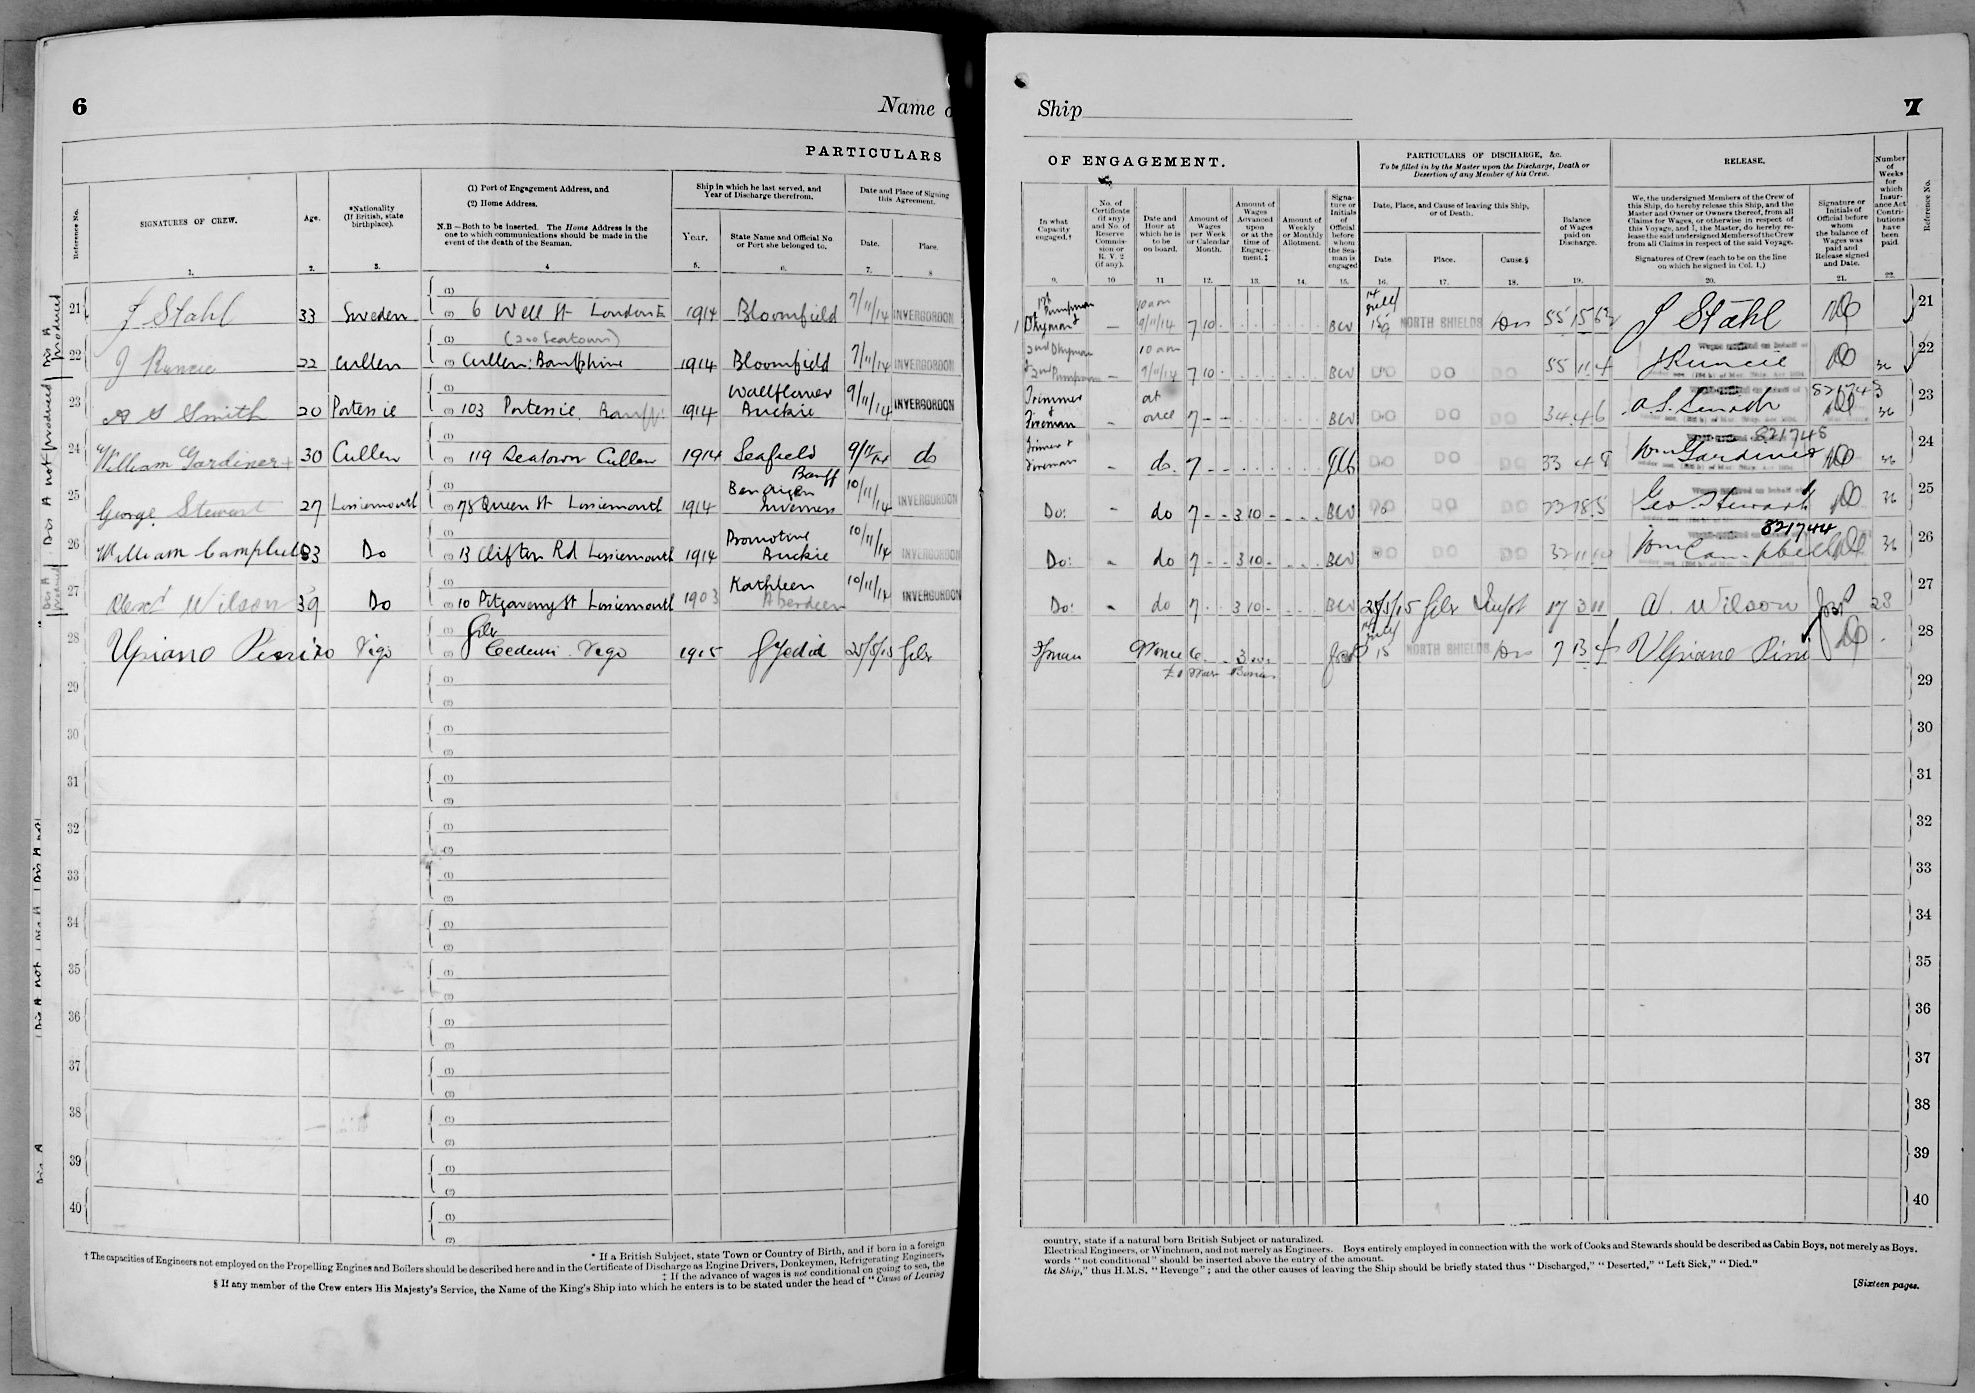 6
Name o
PARTICULARS
Reference No.
SIGNATURES OF CREW.
Age.
*Nationality
(If British, state
birthplace).
(1) Port of Engagement Address, and
(2) Home Address.
N.B—Both to be inserted. The Home Address is the
one to which communications should be made in the
event of the death of the Seaman.
Ship in which he last served, and
Year of Discharge therefrom.
Year.
State Name and Official No.
or Port she belonged to.
Date and Place of Signing
this Agreement.
Date.
Place.
1. 2. 3. 4 5. 6. 7. 8
21 J Stahl 33 Sweden (1) (2) 6 Well St London E 1914 Bloomfield 7/11/14 INVERGORDON
(200 Seatown)
22 J Runcie 22 Cullen (1) (2) Cullen: Banffshire 1914 Bloomfield 7/11/14 INVERGORDON
23 A S Smith 20 Portessie (1) (2) 103 Portessie Banff: 1914 Wallflower Buckie 9/11/14 INVERGORDON
24 William Gardiner 30 Cullen (1) (2) 119 Seatown Cullen 1914 Seafield Banff 9/11/14 do
25 George Stewart 27 Lossiemouth (1) (2) 78 Queen St Lossiemouth 1914 Inverness 10/11/14 INVERGORDON
26 William Campbell 33 Do (1) (2) 13 Clifton Rd Lossiemouth 1914 Promotive Buckie 10/11/14 INVERGORDON
27 Alexr Wilson 39 Do (1) (2) 10 Pitgaveny St Lossiemouth 1903 Kathleen Aberdeen 10/11/14 INVERGORDON
28 Vigo (1) (2) Vigo 1915 25/5/15
29 (1) (2)
30 (1) (2)
31 (1) (2)
32 (1) (2)
33 (1) (2)
34 (1) (2)
35 (1) (2)
36 (1) (2)
37 (1) (2)
38 (1) (2)
39 (1) (2)
40 (1) (2)
Dis A produced
Dis A not produced
Dis A produced
Dis A not
Dis A not
Dis A
* If a British Subject, state Town or Country of Birth, and if born in a foreign
† The capacities of Engineers not employed on the Propelling Engines and Boilers should be described here and in the Certificate of Discharge as Engine Drivers, Donkeymen, Refrigerating Engineers,
‡ If the advance of wages is not conditional on going to sea, the
§ If any member of the Crew enters His Majesty's Service, the Name of the King's Ship into which he enters is to be stated under the head of "Cause of Leaving
Ship
7
OF ENGAGEMENT.
PARTICULARS OF DISCHARGE, &c.
To be filled in by the Master upon the Discharge, Death or
Desertion of any Member of his Crew.
RELEASE.
Number
of
Weeks
for
which
Insur-
ance Act
Contri-
butions
have
been
paid.
Reference No.
In what
Capacity
engaged.†
No. of
Certificate
(if any)
and No. of
Reserve
Commis-
sion or
R. V. 2
(if any).
Date and
Hour at
which he is
to be
on board.
Amount of
Wages
per Week
or Calendar
Month.
Amount of
Wages
Advanced
upon
or at the
time of
Engage-
ment.‡
Amount of
Weekly
or Monthly
Allotment.
Signa-
ture or
Initials
of
Official
before
whom
the Sea-
man is
engaged
Date, Place, and Cause of leaving this Ship,
or of Death.
Date.
Place.
Cause.§
Balance
of Wages
paid on
Discharge.
We, the undersigned Members of the Crew of
this Ship, do hereby release this Ship, and the
Master and Owner or Owners thereof, from all
Claims for Wages, or otherwise in respect of
this Voyage, and I, the Master, do hereby re-
lease the said undersigned Members of the Crew
from all Claims in respect of the said Voyage.
Signatures of Crew (each to be on the line
on which he signed in Col. 1.)
Signature or
Initials of
Official before
whom
the balance of
Wages was
paid and
Release signed
and Date.
9. 10 11 12. 13. 14. 15. 16. 17. 18. 19. 20. 21. 22.
1st Pumpman & Dkyman – 10 am 9/11/14 7 10 NORTH SHIELDS Dis J Stahl 21
2nd Dkyman & 2nd Pumpman – 10 am 9/11/14 7 10 DO DO DO 55 11 4 J Runcie 36 22
Trimmer & Fireman – at once 7 – – DO DO DO 34 4 6 A. S. Smith 821743 36 23
Trimmer & Fireman – do. 7 – DO DO DO 33 4 8 Wm Gardiner 821748 36 24
Do: – do 7 – – 3 10 – DO DO Geo. Stewart 36 25
Do: – do 7 – – 3 10 – DO DO Wm Campbell 821744 36 26
Do: – do 7 3 10 – 25/5/15 17 3 11 A. Wilson 28 27
Fman 6 3 15 NORTH SHIELDS Dis 7 13 4 28
29
30
31
32
33
34
35
36
37
38
39
40
country, state if a natural born British Subject or naturalized.
Electrical Engineers, or Winchmen, and not merely as Engineers. Boys entirely employed in connection with the work of Cooks and Stewards should be described as Cabin Boys, not merely as Boys.
words "not conditional" should be inserted above the entry of the amount.
the Ship," thus H.M.S. "Revenge"; and the other causes of leaving the Ship should be briefly stated thus "Discharged," "Deserted," "Left Sick," "Died."
[Sixteen pages.